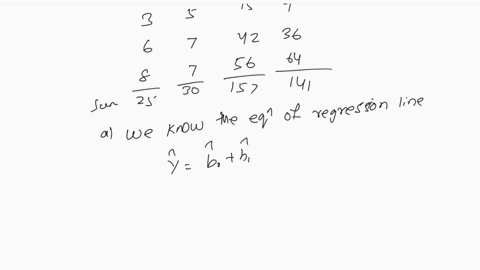 3 5 15
6 7 42 36
8 7 56 64
Sum 25 30 157 141
a) we know the eqn of regression line
ŷ = b̂₀ + b̂₁